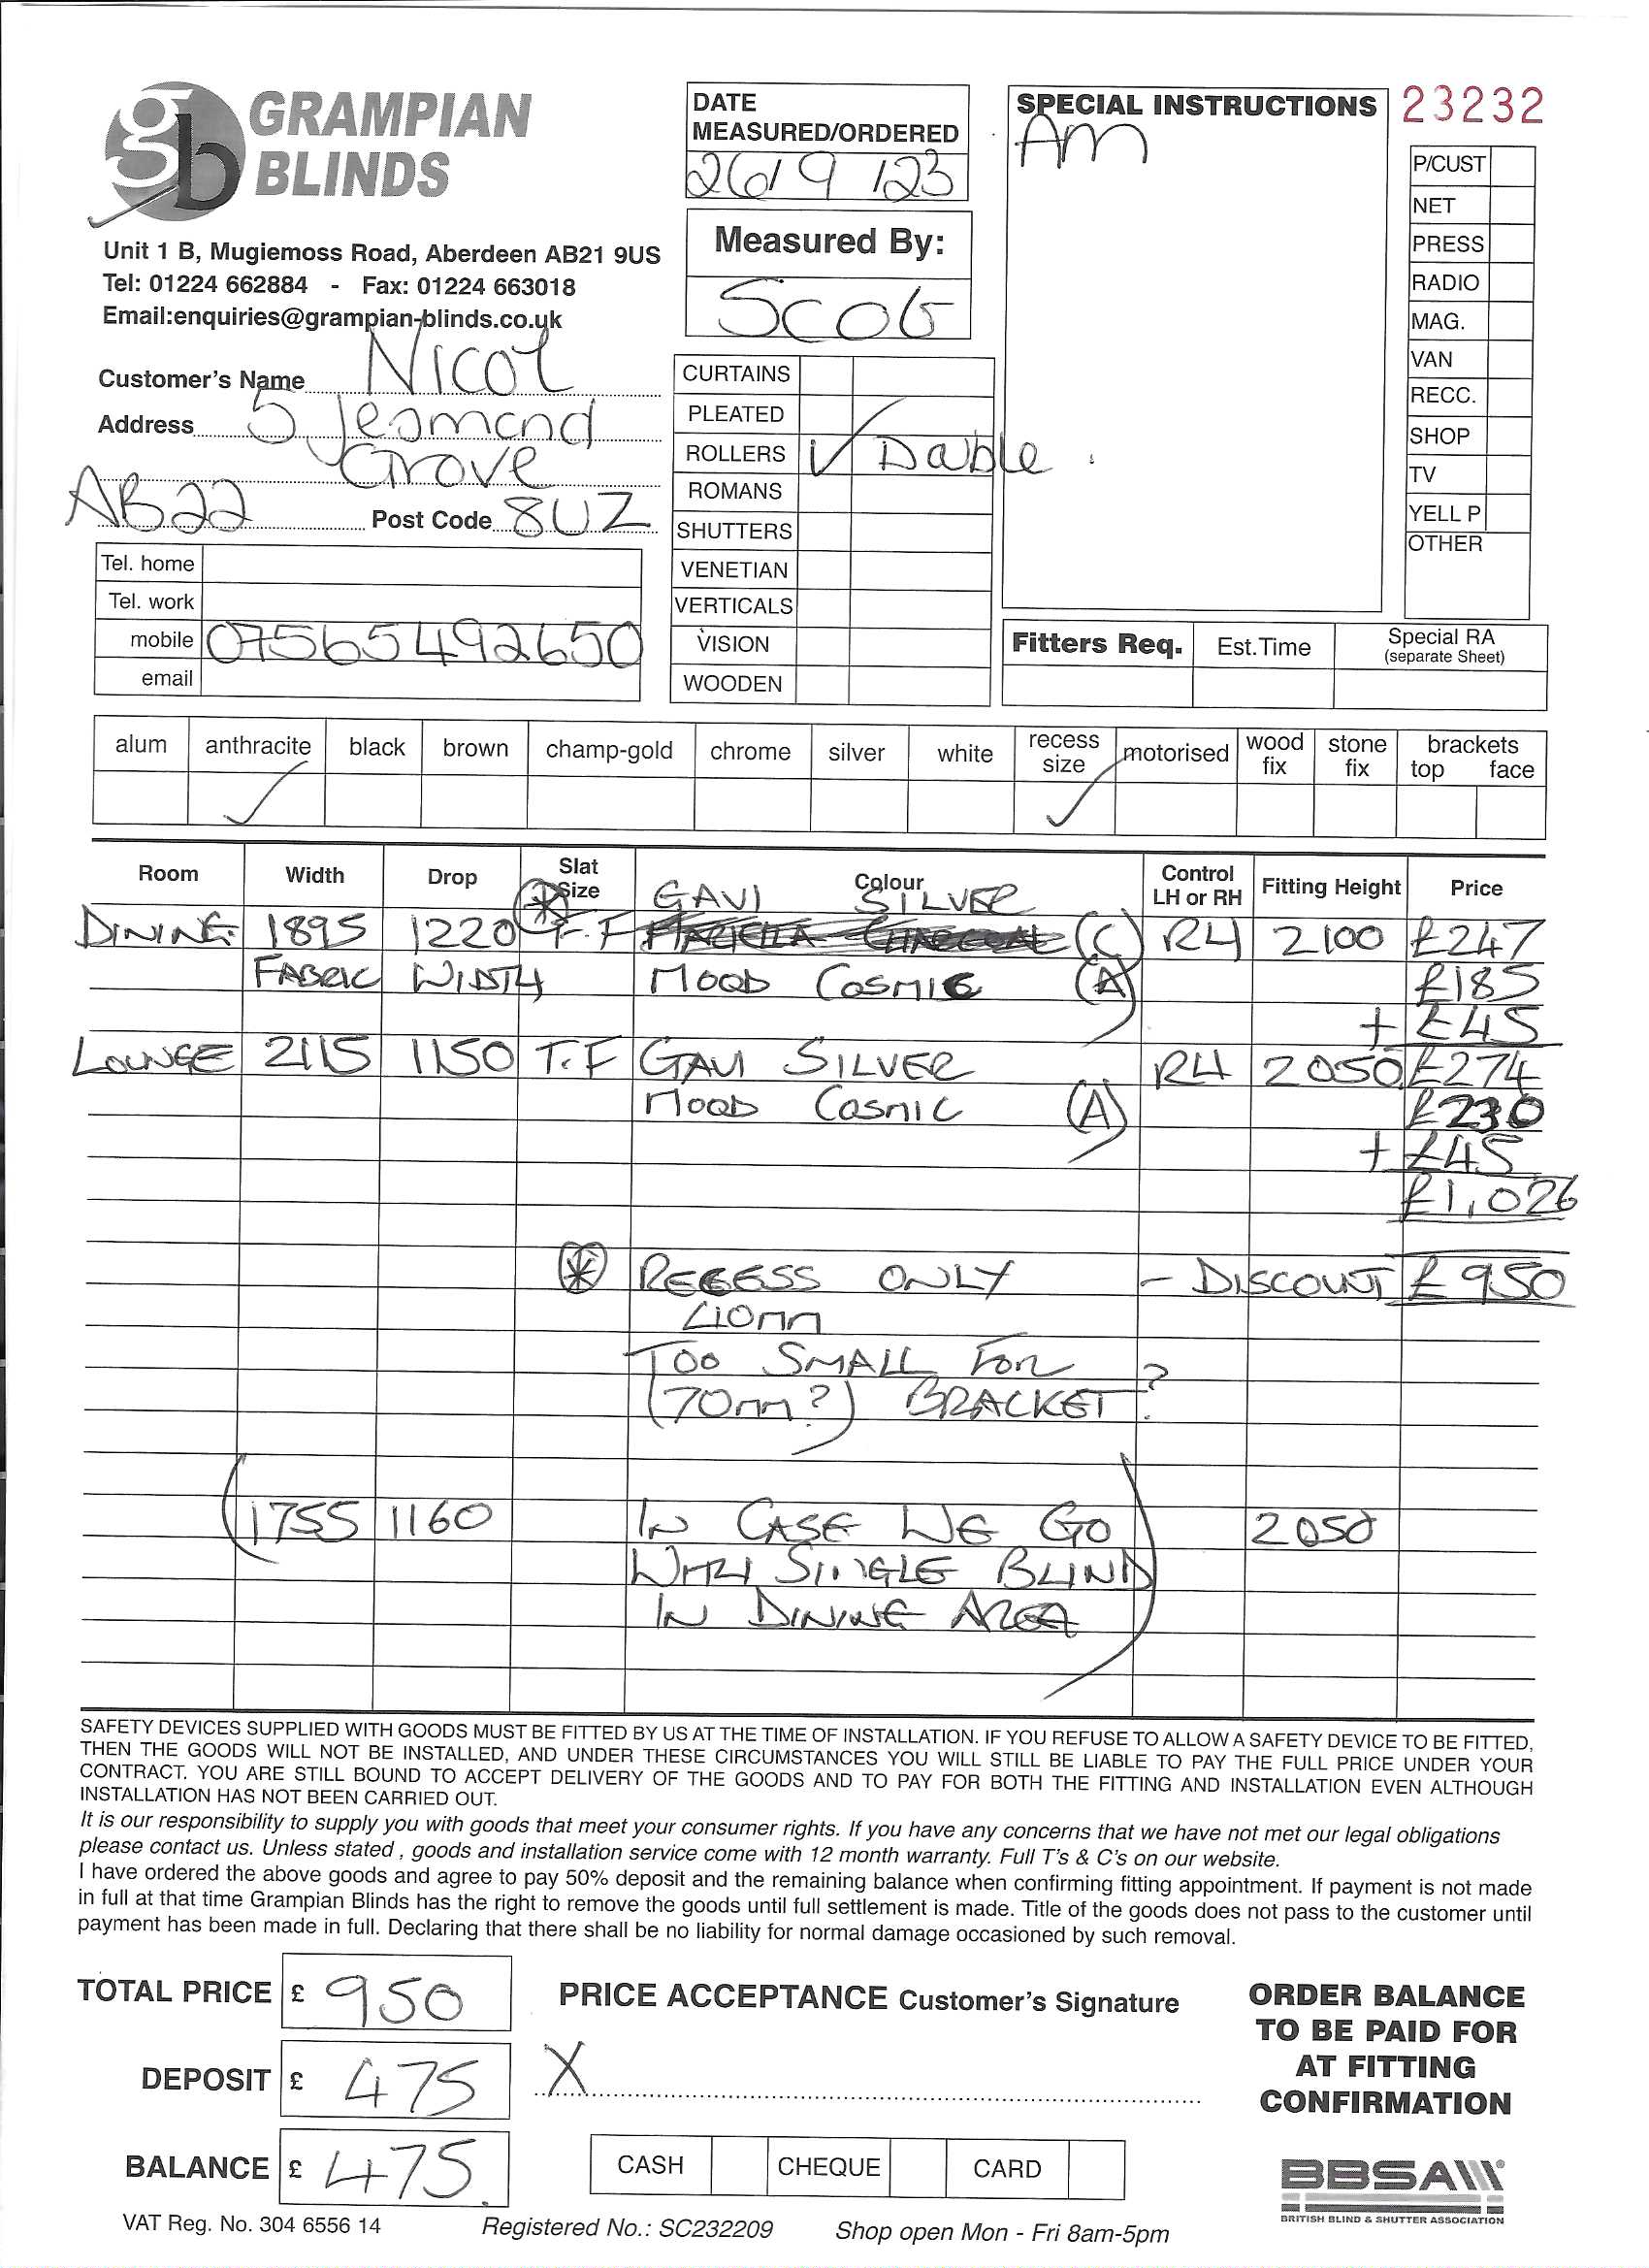 GRAMPIAN
BLINDS
Unit 1 B, Mugiemoss Road, Aberdeen AB21 9US
Tel: 01224 662884 - Fax: 01224 663018
Email:enquiries@grampian-blinds.co.uk
Customer's Name NICOL
Address 5 Jesmond
Grove
AB22 Post Code 8UZ
Tel. home
Tel. work
mobile 07565492650
email
DATE
MEASURED/ORDERED
26/9/23
Measured By:
SCOTT
CURTAINS
PLEATED
ROLLERS ✓ Double
ROMANS
SHUTTERS
VENETIAN
VERTICALS
VISION
WOODEN
SPECIAL INSTRUCTIONS
AM
23232
P/CUST
NET
PRESS
RADIO
MAG.
VAN
RECC.
SHOP
TV
YELL P
OTHER
Fitters Req. Est.Time Special RA
(separate Sheet)
alum anthracite black brown champ-gold chrome silver white recess size motorised wood fix stone fix brackets top face
✓ ✓
Room Width Drop Slat Size Colour Control LH or RH Fitting Height Price
GAVI SILVER
DINING 1895 1220 T.F (C) RH 2100 £247
FABRIC WIDTH MOOD COSMIC (A) £185
+ £45
LOUNGE 2115 1150 T.F GAVI SILVER RH 2050 £274
MOOD COSMIC (A) £230
+ £45
£1,026
* RECESS ONLY - DISCOUNT £950
40mm
TOO SMALL FOR
(70mm?) BRACKET?
(1755 1160 IN CASE WE GO 2050
WITH SINGLE BLIND
IN DINING AREA)
SAFETY DEVICES SUPPLIED WITH GOODS MUST BE FITTED BY US AT THE TIME OF INSTALLATION. IF YOU REFUSE TO ALLOW A SAFETY DEVICE TO BE FITTED,
THEN THE GOODS WILL NOT BE INSTALLED, AND UNDER THESE CIRCUMSTANCES YOU WILL STILL BE LIABLE TO PAY THE FULL PRICE UNDER YOUR
CONTRACT. YOU ARE STILL BOUND TO ACCEPT DELIVERY OF THE GOODS AND TO PAY FOR BOTH THE FITTING AND INSTALLATION EVEN ALTHOUGH
INSTALLATION HAS NOT BEEN CARRIED OUT.
It is our responsibility to supply you with goods that meet your consumer rights. If you have any concerns that we have not met our legal obligations
please contact us. Unless stated , goods and installation service come with 12 month warranty. Full T's & C's on our website.
I have ordered the above goods and agree to pay 50% deposit and the remaining balance when confirming fitting appointment. If payment is not made
in full at that time Grampian Blinds has the right to remove the goods until full settlement is made. Title of the goods does not pass to the customer until
payment has been made in full. Declaring that there shall be no liability for normal damage occasioned by such removal.
TOTAL PRICE £ 950
DEPOSIT £ 475
BALANCE £ 475.
PRICE ACCEPTANCE Customer's Signature
X
CASH CHEQUE CARD
ORDER BALANCE
TO BE PAID FOR
AT FITTING
CONFIRMATION
BBSA
BRITISH BLIND & SHUTTER ASSOCIATION
VAT Reg. No. 304 6556 14 Registered No.: SC232209 Shop open Mon - Fri 8am-5pm